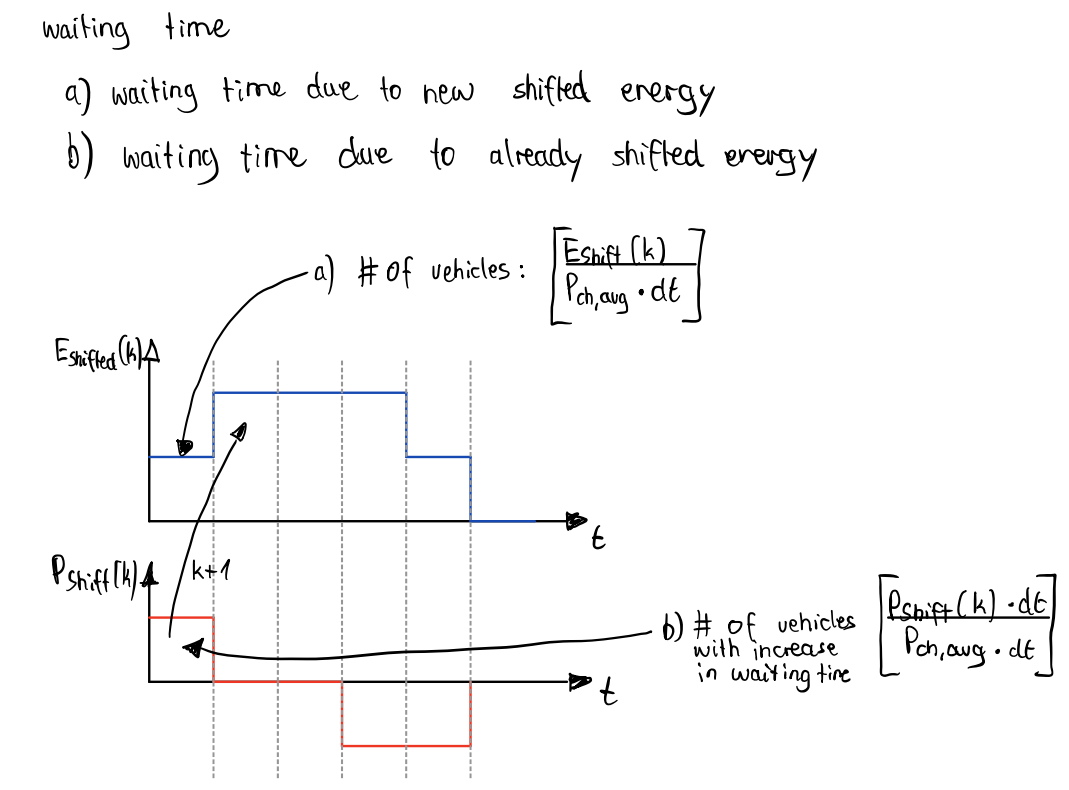 waiting time
a) waiting time due to new shifted energy
b) waiting time due to already shifted energy
a) # of vehicles: [Eshift(k) / Pch,avg · dt]
Eshifted(k)
t
Pshift(k)
k+1
b) # of vehicles
with increase
in waiting time
[Pshift(k) · dt / Pch,avg · dt]
t